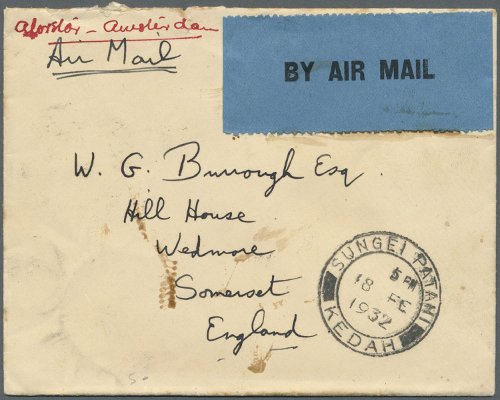 Alorstar - Amsterdam
Air Mail
BY AIR MAIL
W. G. Burrough Esq.
Hill House
Wedmore
Somerset
England
SUNGEI PATANI
5 PM
18 FE
1932
KEDAH
5-